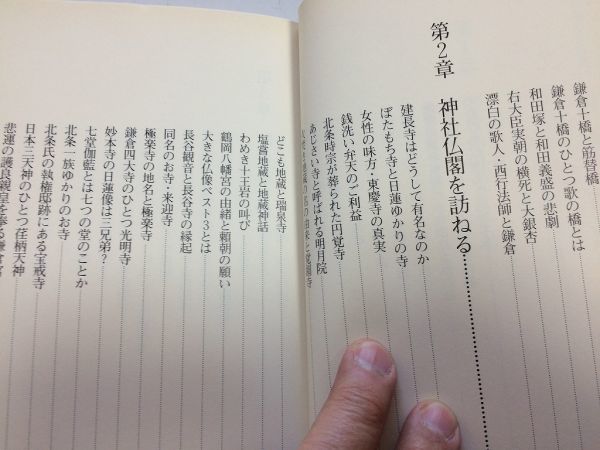 鎌倉十橋と筋替橋
鎌倉十橋のひとつ歌の橋とは
和田塚と和田義盛の悲劇
右大臣実朝の横死と大銀杏
漂白の歌人・西行法師と鎌倉
第2章 神社仏閣を訪ねる
建長寺はどうして有名なのか
ぼたもち寺と日蓮ゆかりの寺
女性の味方・東慶寺の真実
銭洗い弁天のご利益
北条時宗が葬られた円覚寺
あじさい寺と呼ばれる明月院
どこも地蔵と瑞泉寺
塩嘗地蔵と地蔵神話
わめき十王岩の叫び
鶴岡八幡宮の由緒と頼朝の願い
大きな仏像ベスト3とは
長谷観音と長谷寺の縁起
同名のお寺・来迎寺
極楽寺の地名と極楽寺
鎌倉四大寺のひとつ光明寺
妙本寺の日蓮像は三兄弟?
七堂伽藍とは七つの堂のことか
北条一族ゆかりのお寺
北条氏の執権邸跡にある宝戒寺
日本三天神のひとつ荏柄天神
悲運の護良親王を奉る鎌倉宮